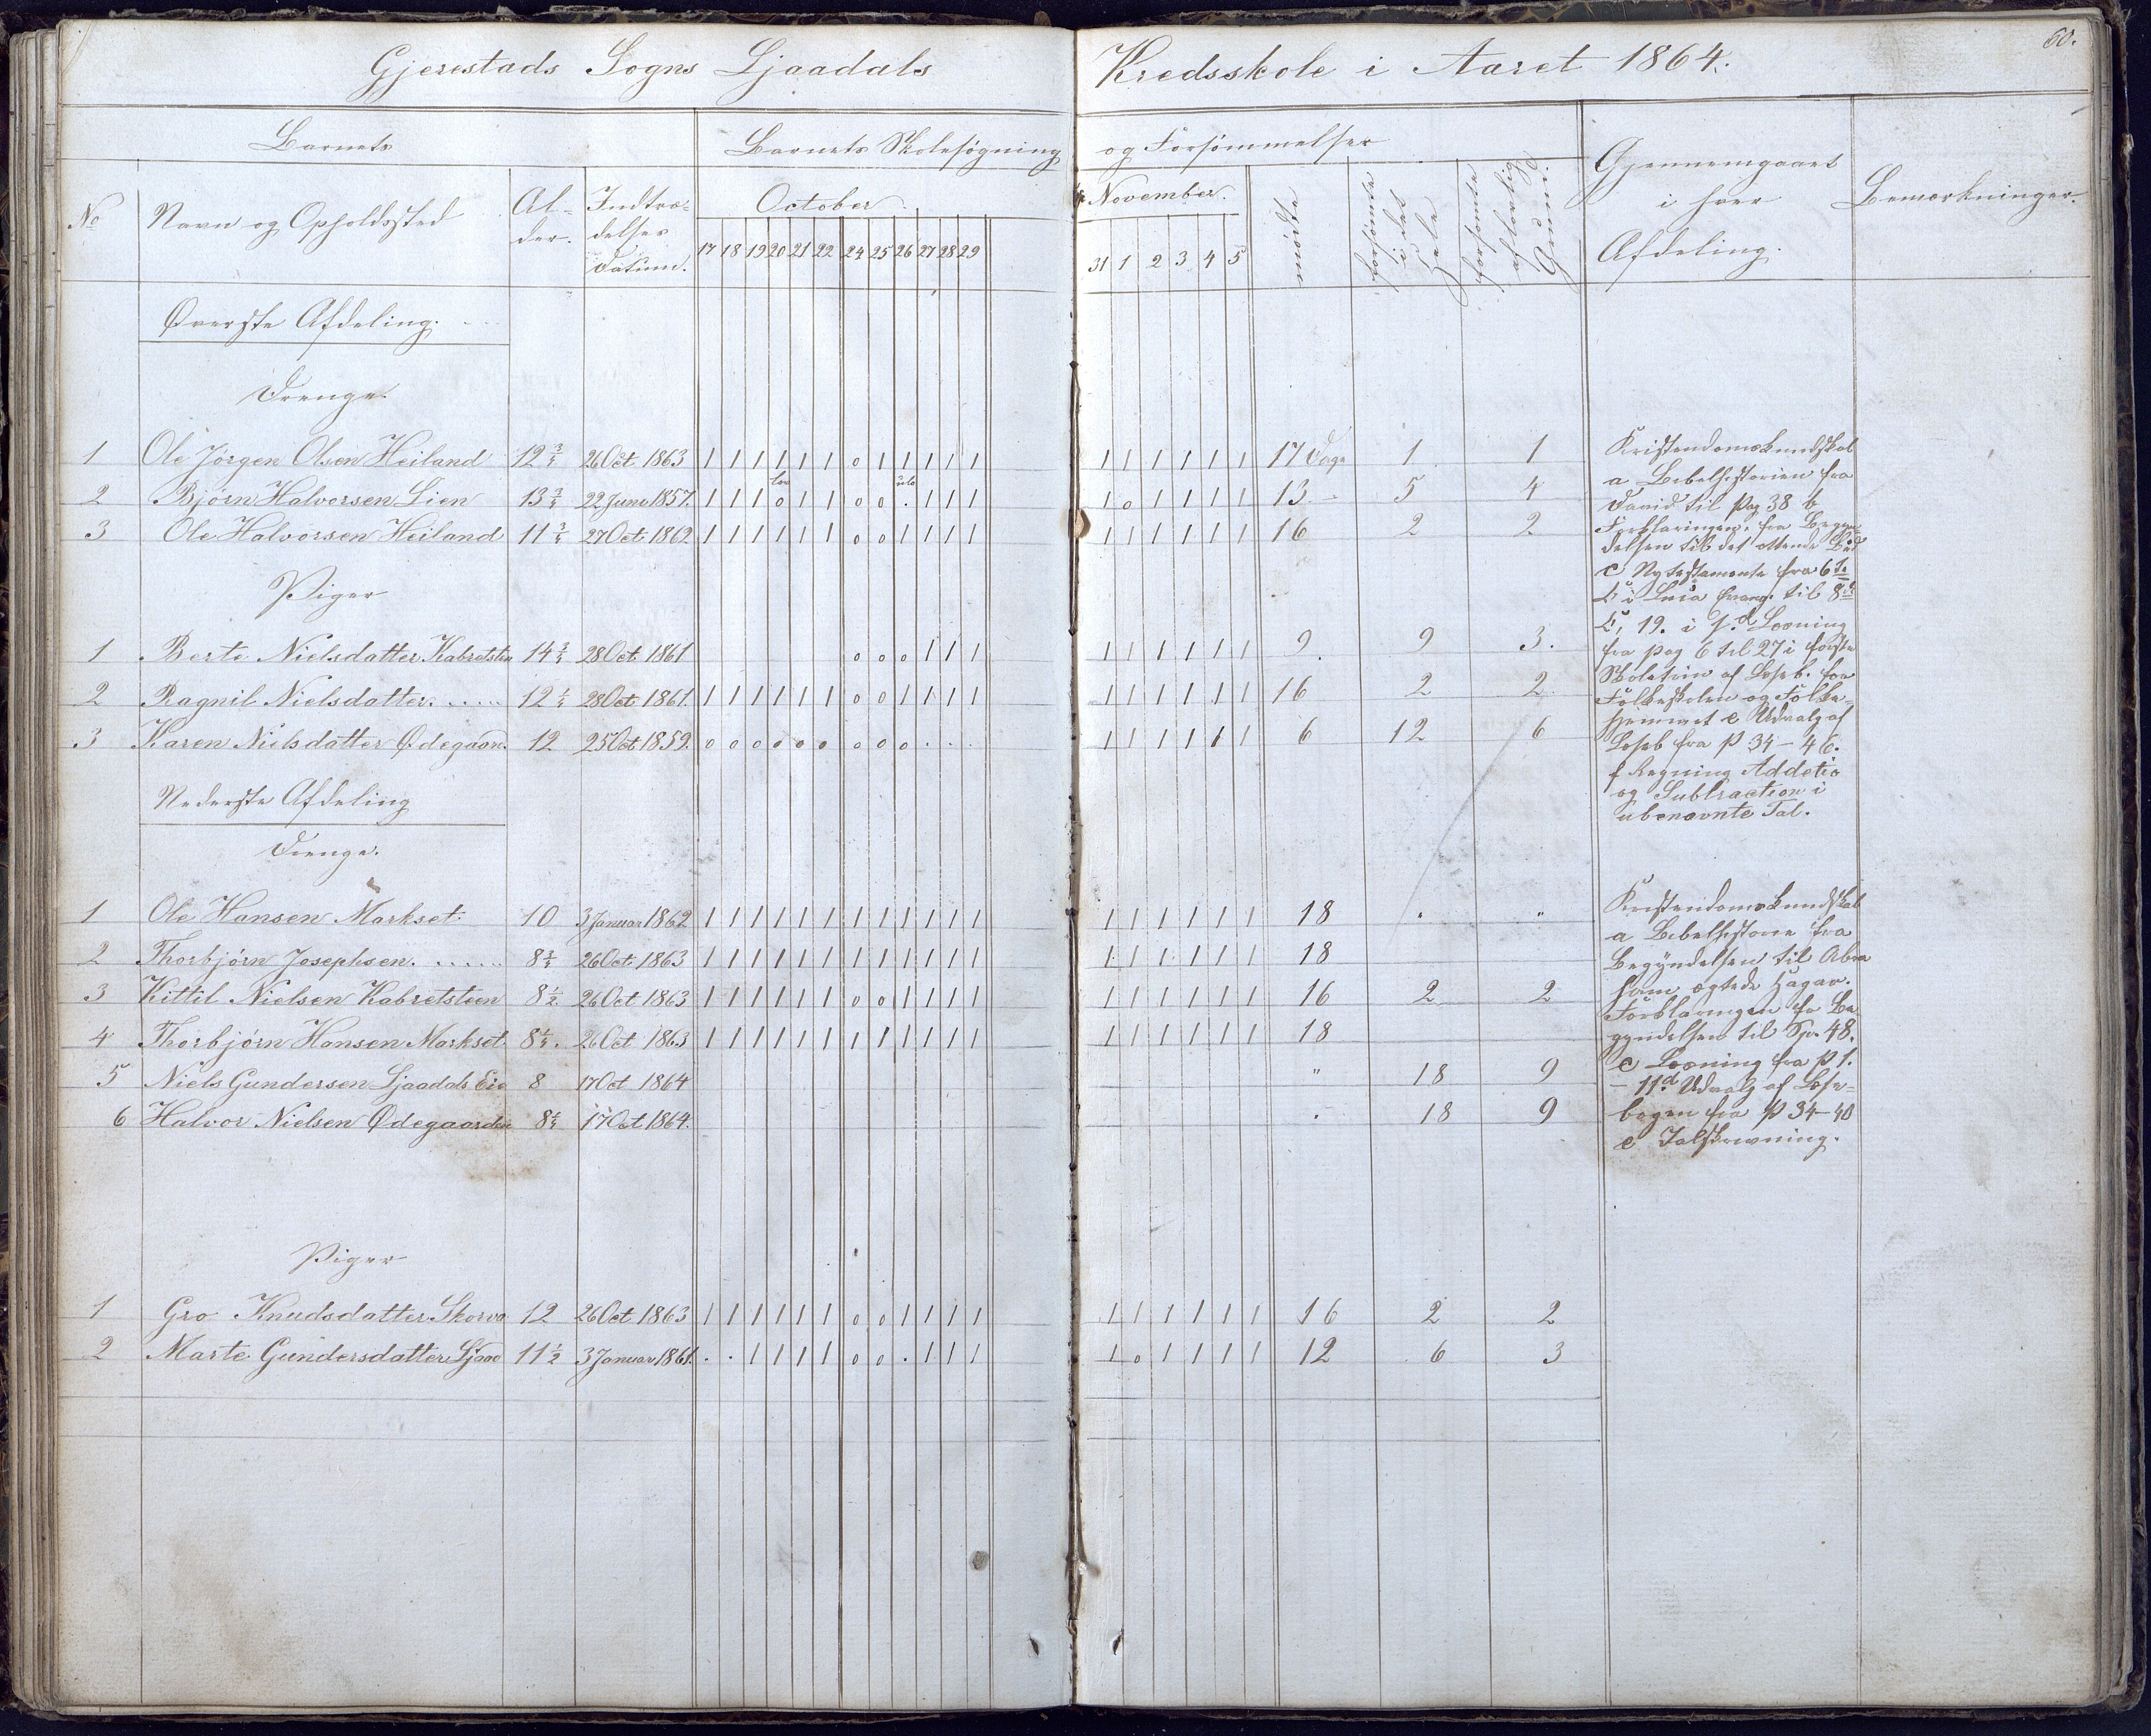 60.
Gjerestads Sogns Ljaadals Kredsskole i Aaret 1864.
Barnets
Barnets Skolesøgning og Forsømmelser
Gjennemgaaet i hver Afdeling.
Bemærkninger.
No
Navn og Opholdssted
Al-
der.
Indtræ-
delses
Datum.
October
November.
mødte
forsømte i det Hele
forsømte af lovlig Grund.
17 18 19 20 21 22 24 25 26 27 28 29
31 1 2 3 4 5
Øverste Afdeling.
Drenge.
1 Ole Jörgen Olsen Heiland 12 3/4 26 Oct 1863 1 1 1 1 1 1 0 1 1 1 1 1 1 1 1 1 1 1 17 Dage 1 1
2 Bjørn Halvorsen Lien 13 3/4 22 Juno 1857. 1 1 1 0 1 1 0 0 . 1 1 1 1 0 1 1 1 1 13 - 5 4
3 Ole Halvorsen Heiland 11 3/4 27 Oct 1862 1 1 1 1 1 1 0 0 1 1 1 1 1 1 1 1 1 1 16 2 2
Piger
1 Berte Nielsdatter Kabretsten 14 3/4 28 Oct 1861 0 0 0 1 1 1 1 1 1 1 1 1 9 9 3.
2 Ragnil Nielsdatter ..... 12 1/4 28 Oct 1861. 1 1 1 1 1 1 0 0 1 1 1 1 1 1 1 1 1 1 16 2 2
3 Karen Nielsdatter Ødegaar. 12 25 Oct 1859. 0 0 0 0 0 0 0 0 0 . . . 1 1 1 1 1 1 6 12 6
Kristendomskundskab
a Bibelhistorien fra
David til Pag 38 b
Forklaringen, fra Begyn-
delsen til det ottende Bud
c Ny Testamente fra 6te
C i Luca Evang. til 8de
C, 19. i V. d Læsning
fra pag 6 til 27 i første
Skoletrin af Læseb. for
Folkeskolen og Folke-
hjemmet e Udvalg af
Læseb fra P 34 - 46.
f Regning Addetio
og Subtraction i
ubenævnte Tal.
Nederste Afdeling
Drenge.
1 Ole Hansen Markset: 10 3 Januar 1862 1 1 1 1 1 1 1 1 1 1 1 1 1 1 1 1 1 1 18 " "
2 Thorbjörn Josephsen. ...... 8 3/4 26 Oct. 1863 1 1 1 1 1 1 1 1 1 1 1 1 1 1 1 1 1 1 18
3 Kittil Nielsen Kabretsteen 8 1/2 26 Oct 1863 1 1 1 1 1 1 0 0 1 1 1 1 1 1 1 1 1 1 16 2 2
4 Thorbjörn Hansen Markset 8 1/4. 26 Oct 1863 1 1 1 1 1 1 1 1 1 1 1 1 1 1 1 1 1 1 18
5 Niels Gundersen Ljaadals Eie 8 17 Oct 1864 " 18 9
6 Halvor Nielsen Ødegaarden 8 1/4 17 Oct 1864. . 18 9
Kristendomskundskab
a Bibelhistorie fra
Begyndelsen til Abra
ham ægtede Hagar.
Forklaringen fra Be
gyndelsen til Sp. 48.
c Læsning fra P 1.
- 11. d Udvalg af Læse-
bogen fra P 34-40
e Talskrivning.
Piger
1 Gro Knudsdatter Skorva 12 26 Oct 1863 1 1 1 1 1 1 0 0 1 1 1 1 1 1 1 1 1 1 16 2 2
2 Marte Gundersdatter Ljaad 11 1/2 3 Januar 1861. . . 1 1 1 1 0 0 . 1 1 1 1 0 1 1 1 1 12 6 3